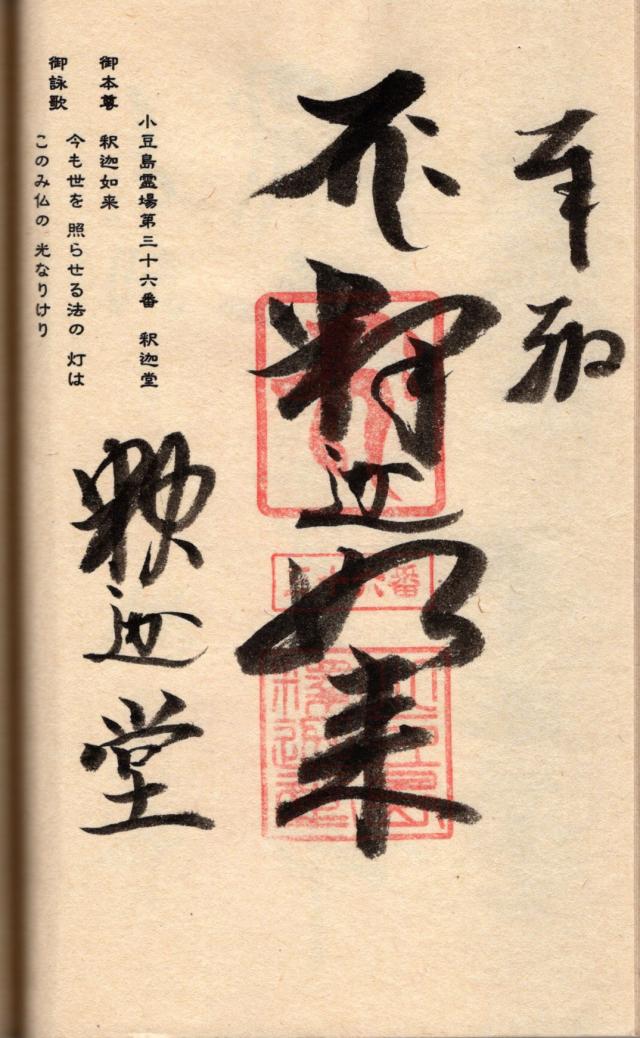 奉納
釈迦如来
釈迦堂
小豆島霊場第三十六番 釈迦堂
御本尊 釈迦如来
御詠歌
今も世を 照らせる法の 灯は
このみ仏の 光なりけり
六番